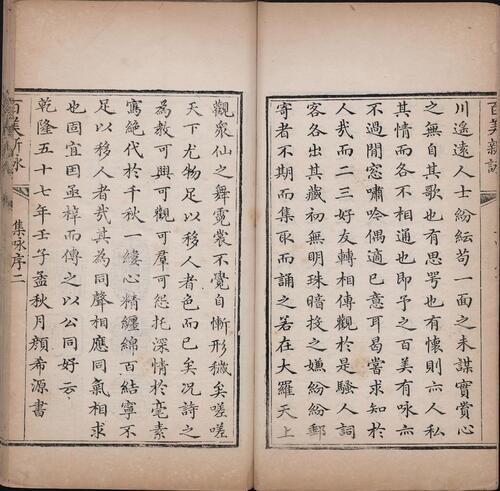 百美新詠
川遙遠人士紛紜茍一面之未謀實賞心
之無自其歌也有思咢也有懷則六人私
其情而各不相通也即予之百美有咏亦
不過閒窓嘯吟偶適己意耳曷嘗求知於
人哉而二三好友轉相傳觀於是騷人詞
客各出其藏初無明珠暗投之嫌紛紛郵
寄者不期而集取而誦之若在大羅天上
觀衆仙之舞霓裳不覺自慚形穢矣嗟嗟
天下尤物足以移人者色而已矣况詩之
為教可興可觀可羣可怨托深情於毫素
寫絕代於千秋一縷心精纏綿百結寧不
足以移人者哉其為同聲相應同氣相求
也固宜因亟梓而傳之以公同好云
乾隆五十七年壬子孟秋月顏希源書
百美新詠
集咏序二